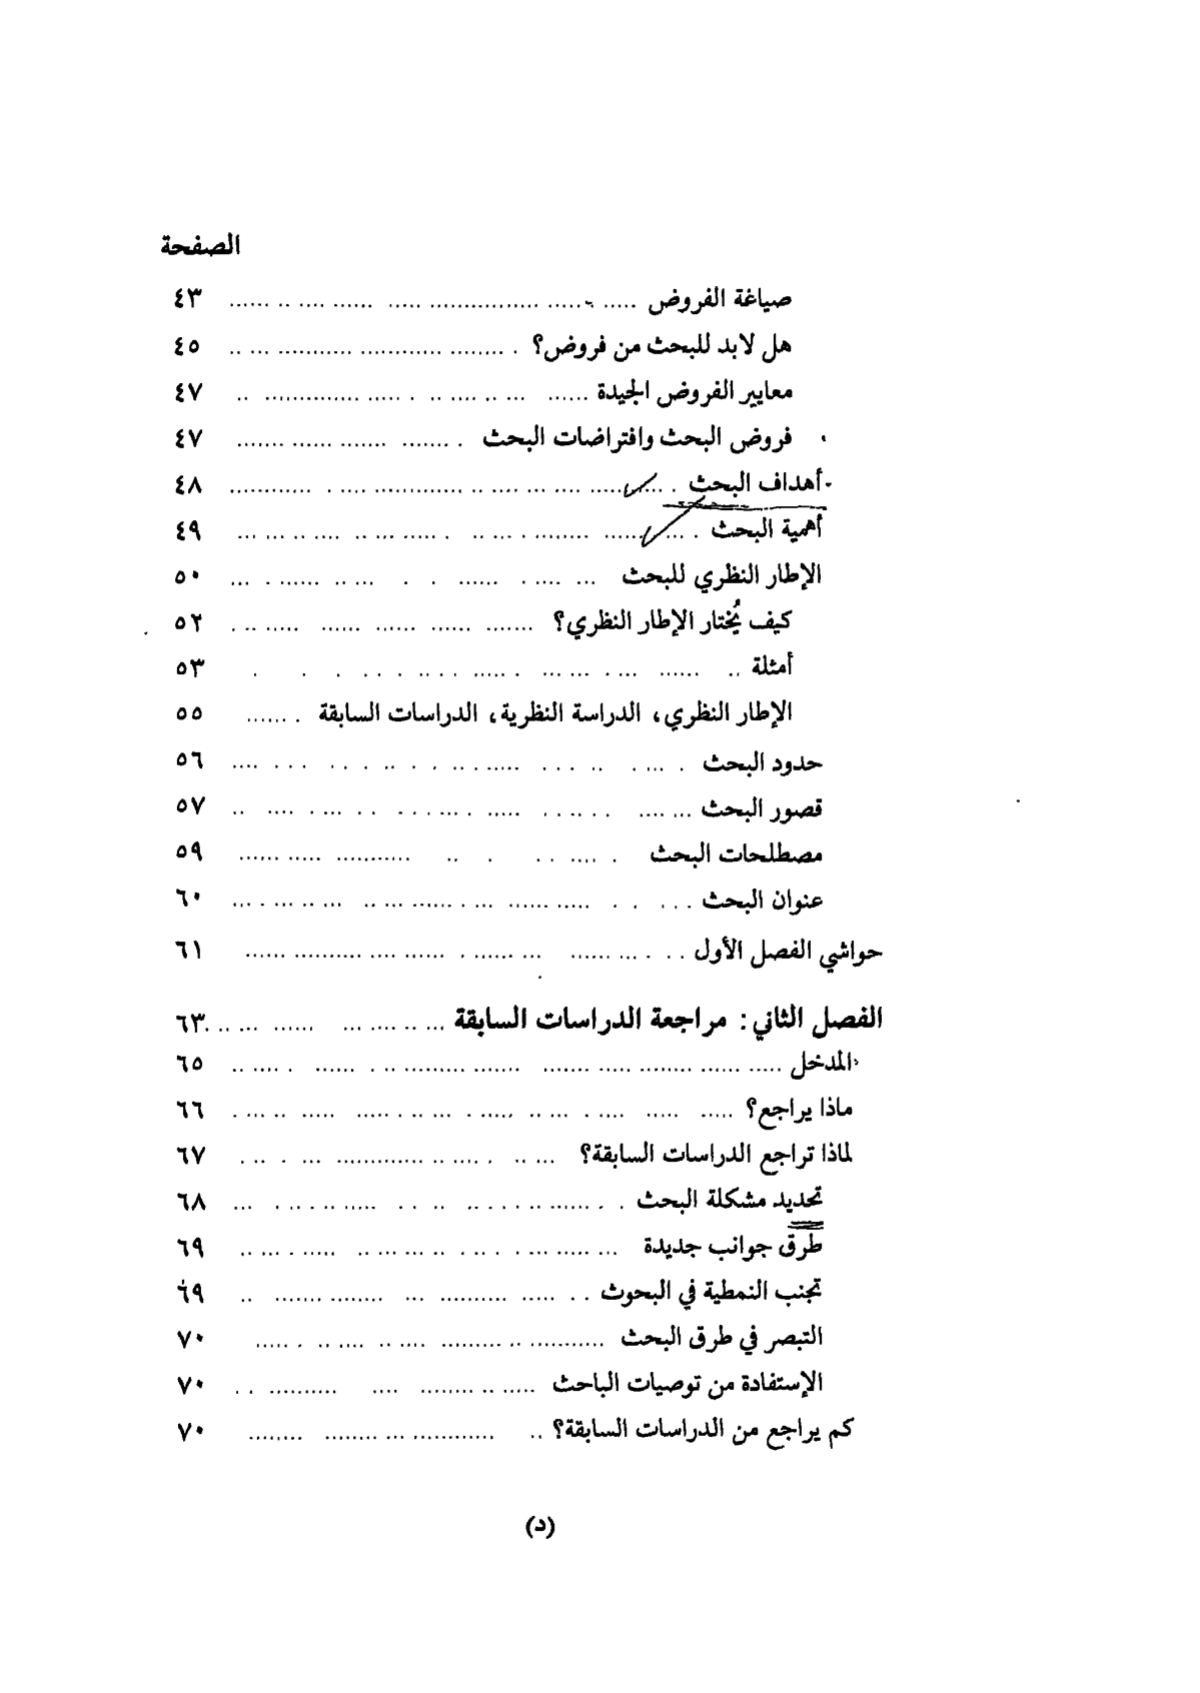 الصفحة
صياغة الفروض ........ ٤٣
هل لابد للبحث من فروض؟ ........ ٤٥
معايير الفروض الجيدة ........ ٤٧
فروض البحث وافتراضات البحث ........ ٤٧
أهداف البحث ........ ٤٨
أهمية البحث ........ ٤٩
الإطار النظري للبحث ........ ٥٠
كيف يُختار الإطار النظري؟ ........ ٥٢
أمثلة ........ ٥٣
الإطار النظري، الدراسة النظرية، الدراسات السابقة ........ ٥٥
حدود البحث ........ ٥٦
قصور البحث ........ ٥٧
مصطلحات البحث ........ ٥٩
عنوان البحث ........ ٦٠
حواشي الفصل الأول ........ ٦١
الفصل الثاني: مراجعة الدراسات السابقة ........ ٦٣
المدخل ........ ٦٥
ماذا يراجع؟ ........ ٦٦
لماذا تراجع الدراسات السابقة؟ ........ ٦٧
تحديد مشكلة البحث ........ ٦٨
طرق جوانب جديدة ........ ٦٩
تجنب النمطية في البحوث ........ ٦٩
التبصر في طرق البحث ........ ٧٠
الإستفادة من توصيات الباحث ........ ٧٠
كم يراجع من الدراسات السابقة؟ ........ ٧٠
(د)